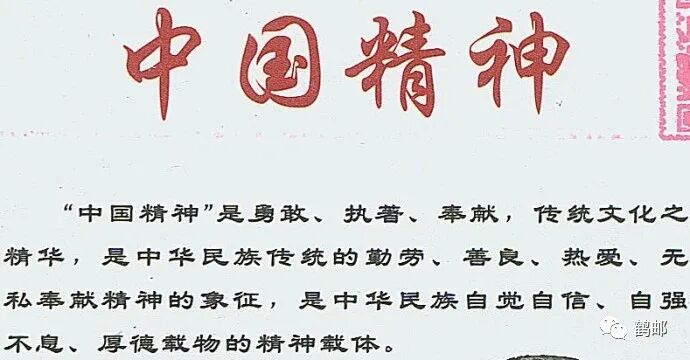 中国精神
“中国精神”是勇敢、执著、奉献，传统文化之
精华，是中华民族传统的勤劳、善良、热爱、无
私奉献精神的象征，是中华民族自觉自信、自强
不息、厚德载物的精神载体。
鹤邮